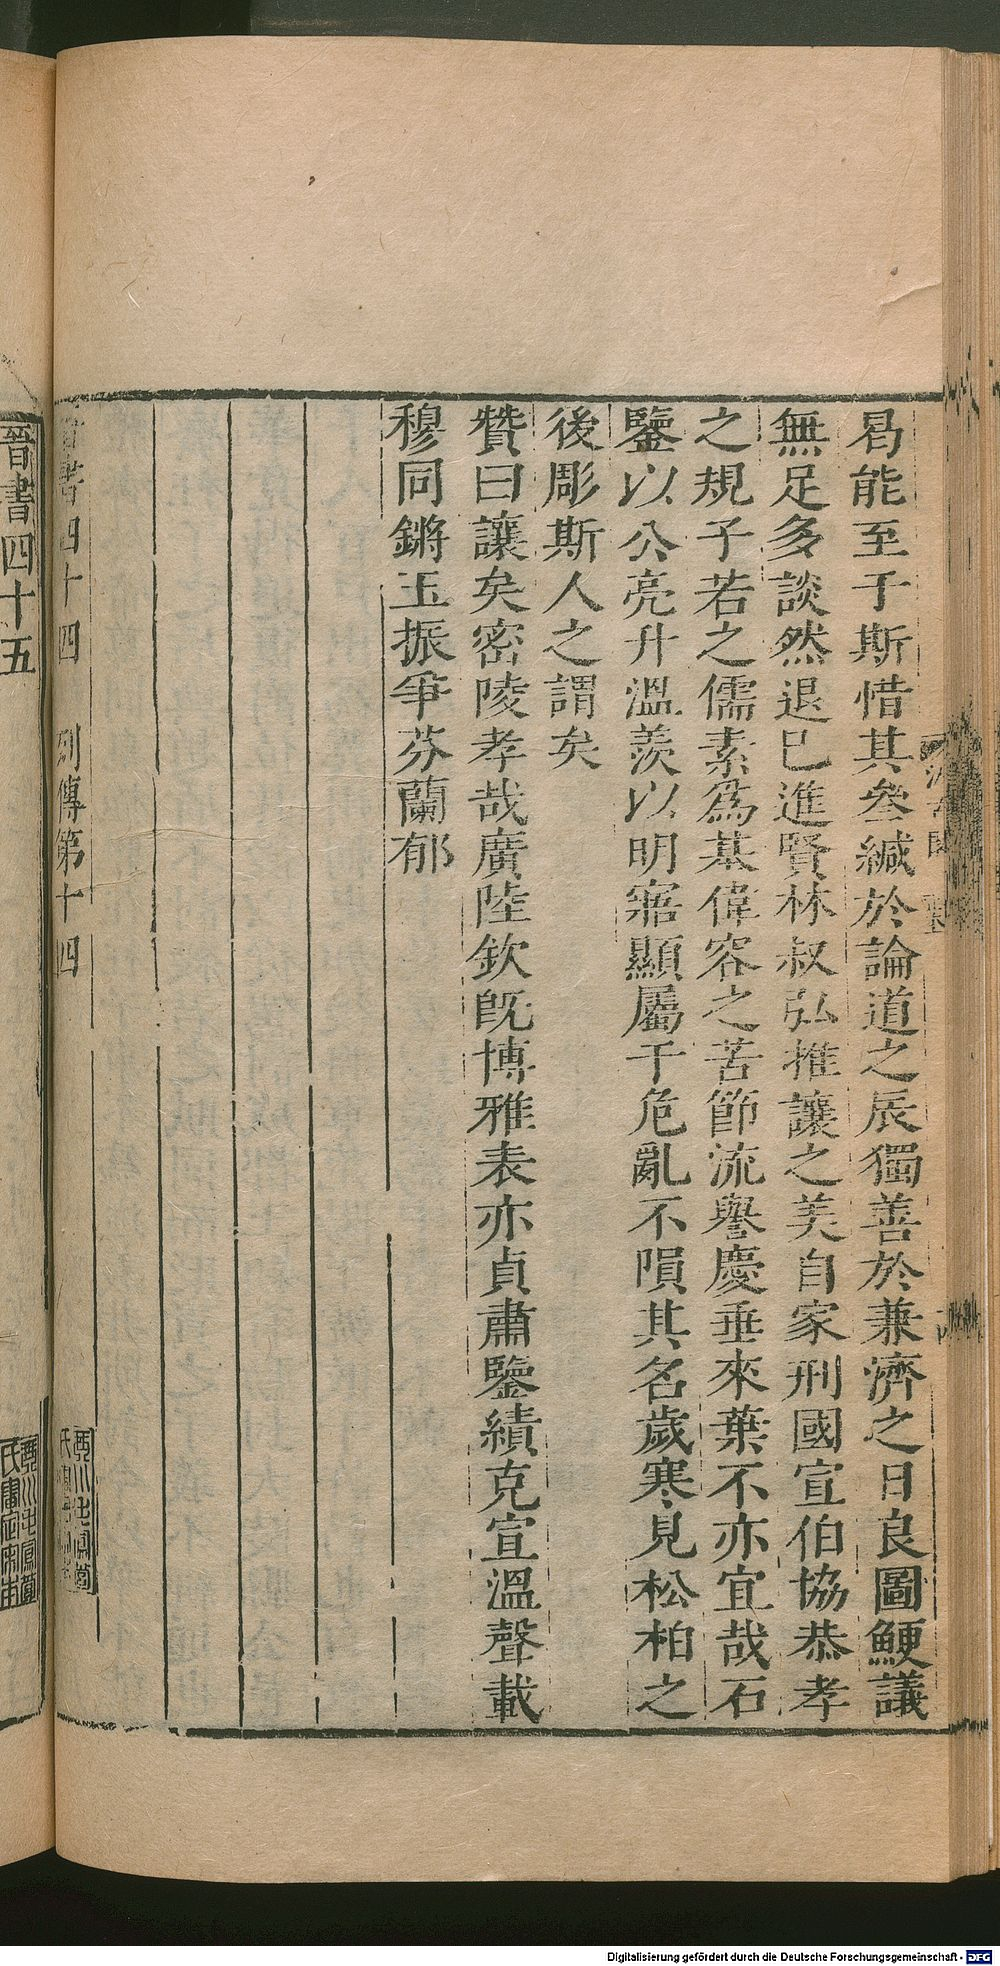 曷能至于斯惜其叄緘於論道之辰獨善於兼濟之日良圖鯁議
無足多談然退已進賢林叔弘推讓之美自家刑國宣伯協恭孝
之規子若之儒素爲基偉容之苦節流譽慶垂來葉不亦宜哉石
鑒以公亮升溫羨以明寤顯屬于危亂不隕其名歲寒見松柏之
後彫斯人之謂矣
贊曰讓矣密陵孝哉廣陸欽旣博雅表亦貞肅鑒績克宣溫聲載
穆同鏘玉振爭芬蘭郁
晉書四十四 列傳第十四
晉書四十五
Digitalisierung gefördert durch die Deutsche Forschungsgemeinschaft - DFG